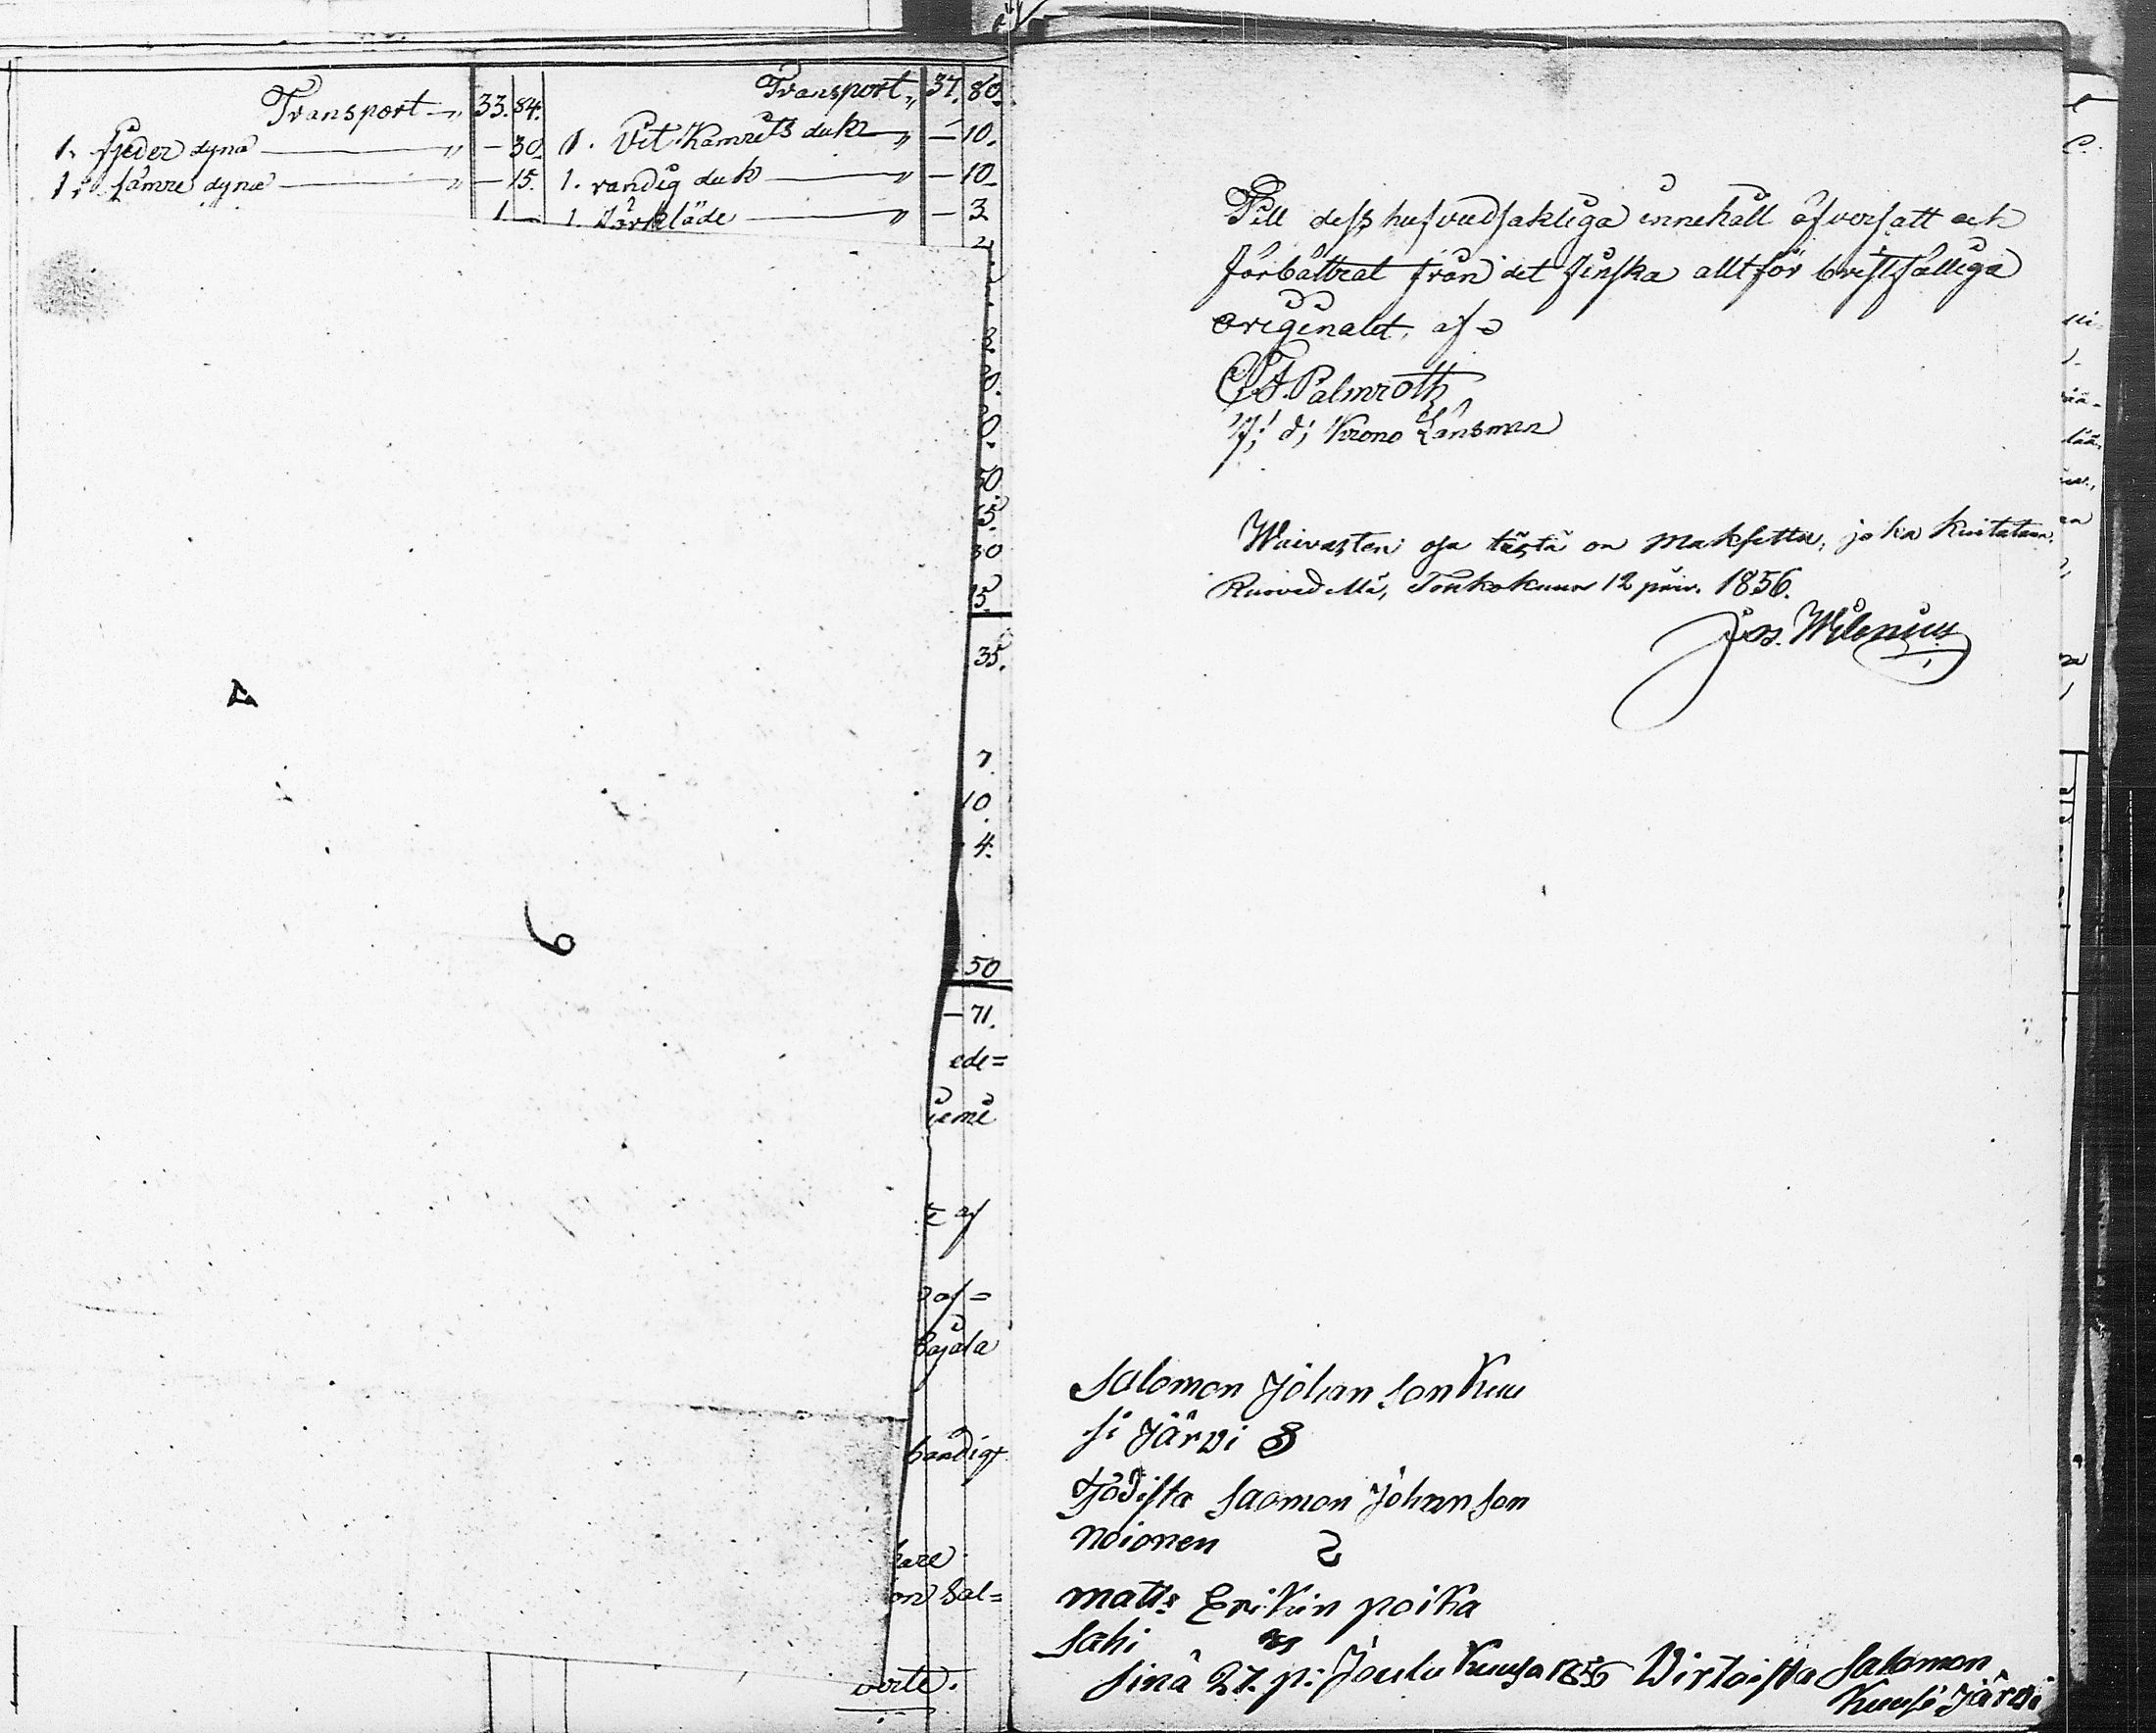 Transport 33. 84.
1. fjeder dyna " — 30.
1. sämre dyna " — 15.
1
Transport " 37. 80.
1. Vit Kamrets duk " — 10.
1. randig duk " — 10.
1. Förkläde " — 3
0.
0.
50.
15.
30
15.
35.
7.
10
4.
50
— 71.
ede=
af
af=
bajala
händigt
hare
Sal=
verte.
6
Till dess hufvudsakliga innehåll öfversatt och
förbättrat från det finska alltför bristfälliga
originalet, af
C. F. Palmroth
T; f; Krono Länsman
Waivasten osa tästä on maksettu, joka kuitataan.
Ruovedellä, Toukokuun 12 päiv. 1856.
Jos. Wilenius
Salomon Johan son Kuu
si Järvi
todista Saomon Johan son
Noionen
matts Erikin poika
Sahi
Sinä 27. p: Joulu Kuusa 1855 Virtoista Salomon
Kuusi Järvi